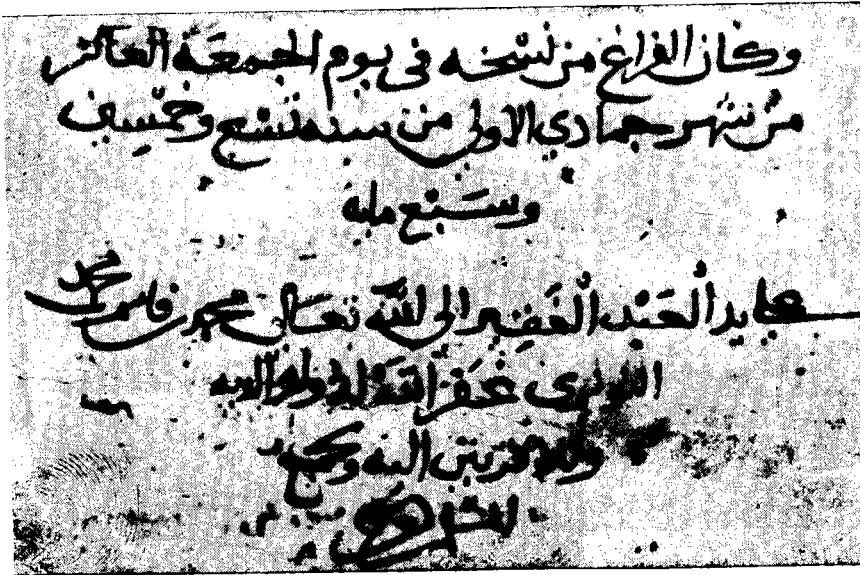 وكان الفراغ من نسخه في يوم الجمعة العاشر
من شهر جمادي الاولى من سنه تسع وخمسين
وسبع مايه
على يد العبد الفقير الى الله تعالى محمد بن قاسم بن محمد
غفر الله له ولوالديه
وجميع